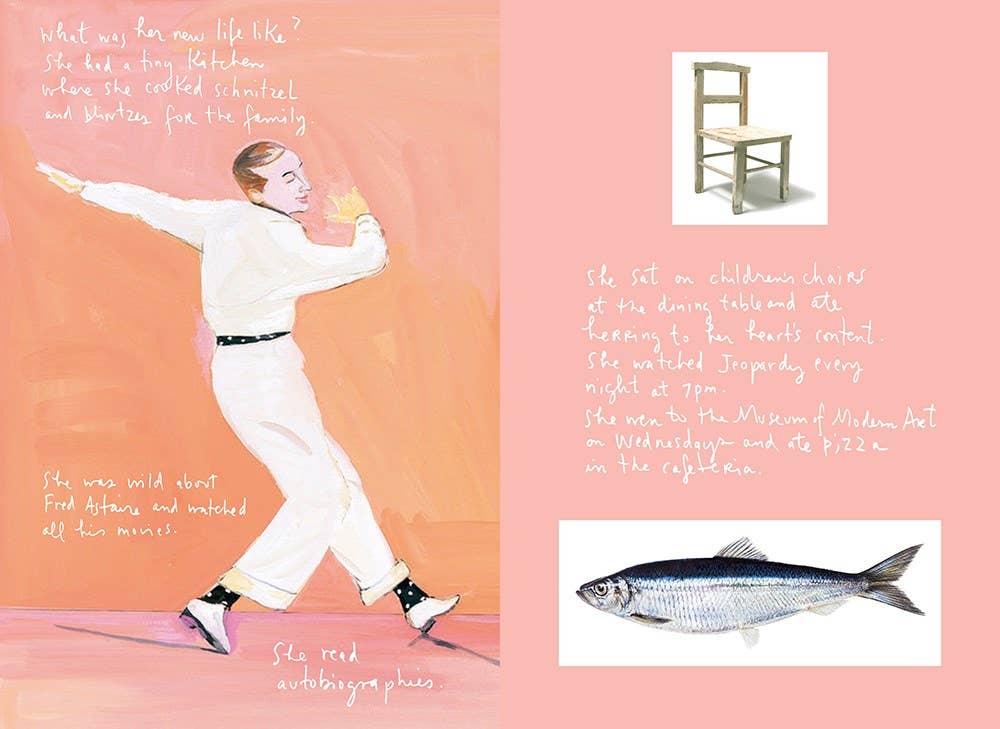 What was her new life like?
She had a tiny Kitchen
where she cooked schnitzel
and blintzes for the family.
She was wild about
Fred Astaire and watched
all his movies.
She read
autobiographies.
She sat on children's chairs
at the dining table and ate
herring to her heart's content.
She watched Jeopardy every
night at 7pm.
She wen to the Museum of Modern Art
on Wednesdays and ate pizza
in the cafeteria.